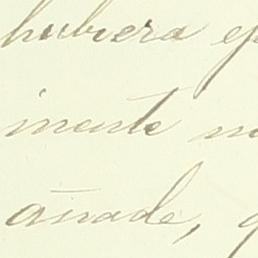 hubiera
mente
añade,